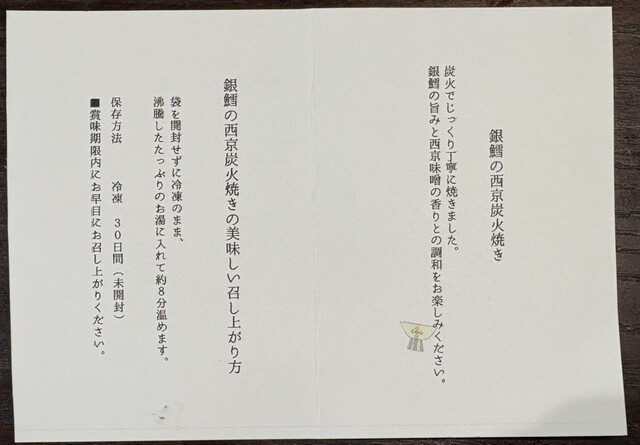 銀鱈の西京炭火焼き
炭火でじっくり丁寧に焼きました。
銀鱈の旨みと西京味噌の香りとの調和をお楽しみください。
銀鱈の西京炭火焼きの美味しい召し上がり方
袋を開封せずに冷凍のまま、
沸騰したたっぷりのお湯に入れて約8分温めます。
保存方法　　冷凍　30日間（未開封）
■賞味期限内にお早目にお召し上がりください。